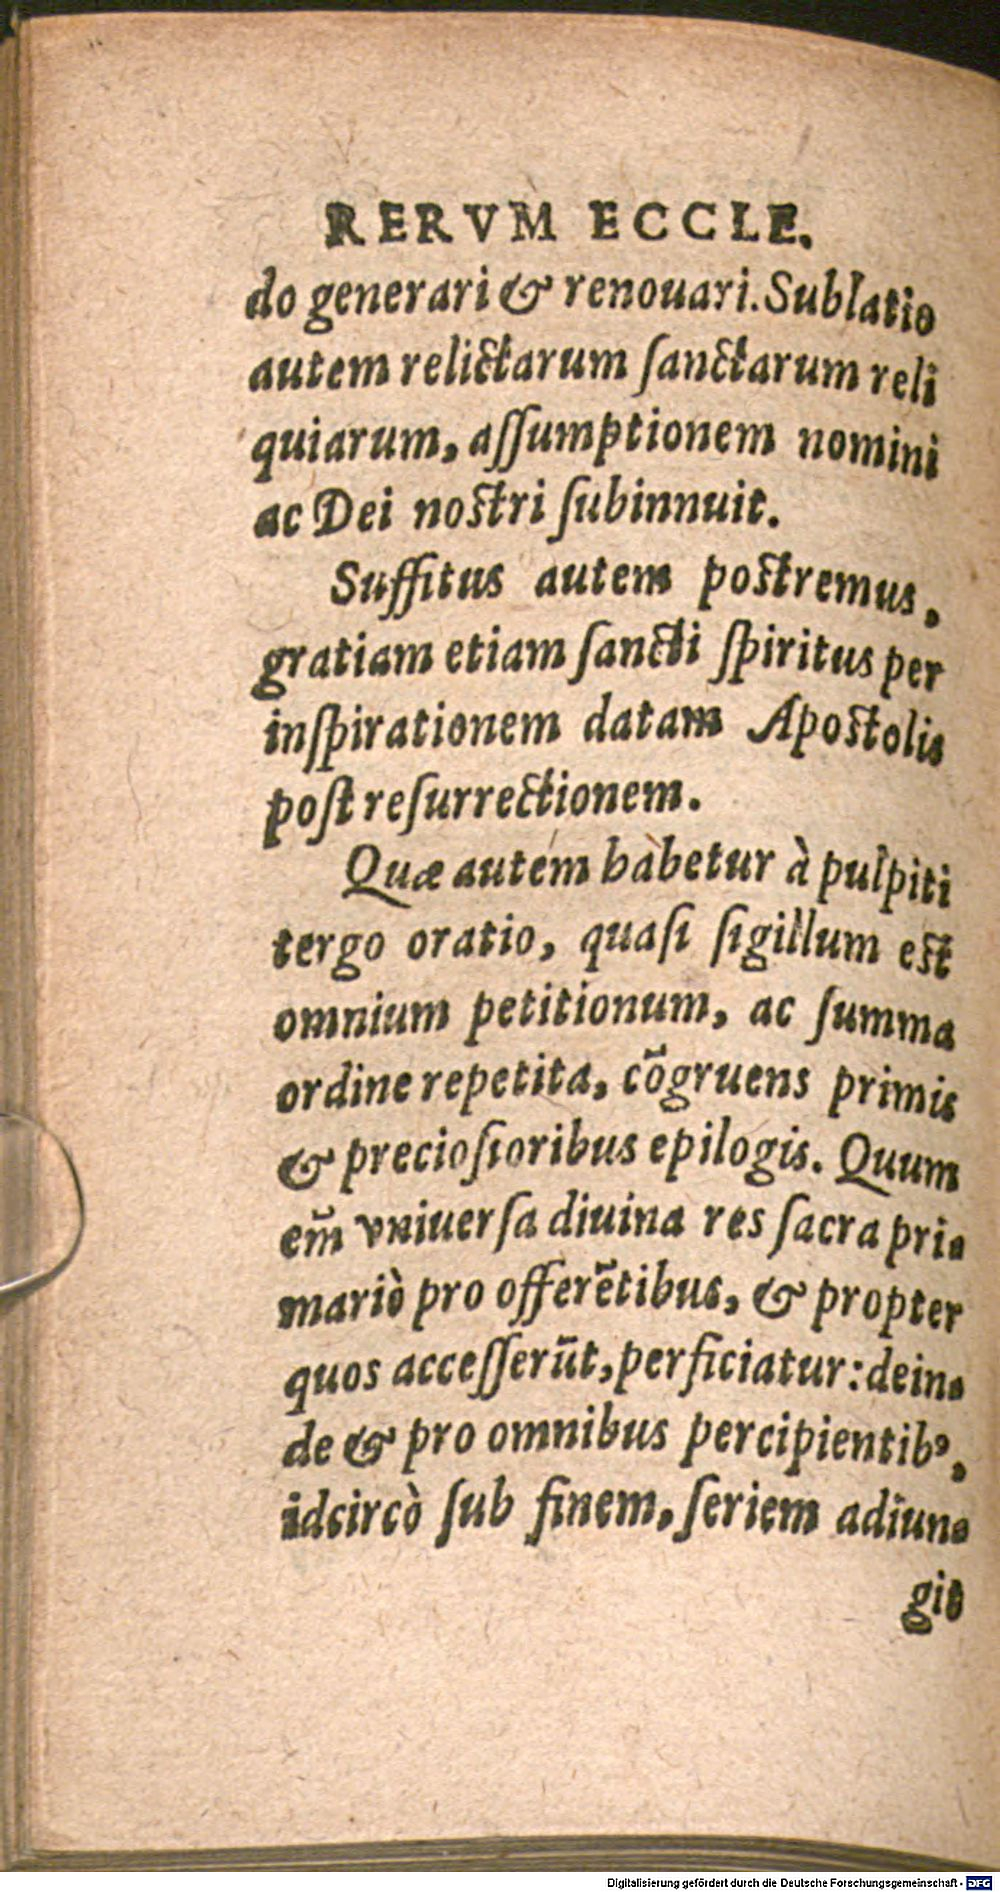 RERVM ECCLE.
do generari & renouari. Sublatio
autem relictarum ſanctarum reli
quiarum, aſſumptionem nomini
ac Dei noſtri ſubinnuit.
Suffitus autem poſtremus,
gratiam etiam ſancti ſpiritus per
inſpirationem datam Apoſtolis
poſt reſurrectionem.
Quæ autem habetur à pulpiti
tergo oratio, quaſi ſigillum eſt
omnium petitionum, ac ſumma
ordine repetita, cõgruens primis
& precioſioribus epilogis. Quum
em̃ vniuerſa diuina res ſacra pri-
mariò pro offerẽtibus, & propter
quos acceſſerũt, perficiatur: dein-
de & pro omnibus percipientibꝰ,
idcircò ſub finem, ſeriem adiun-
git
Digitalisierung gefördert durch die Deutsche Forschungsgemeinschaft - DFG